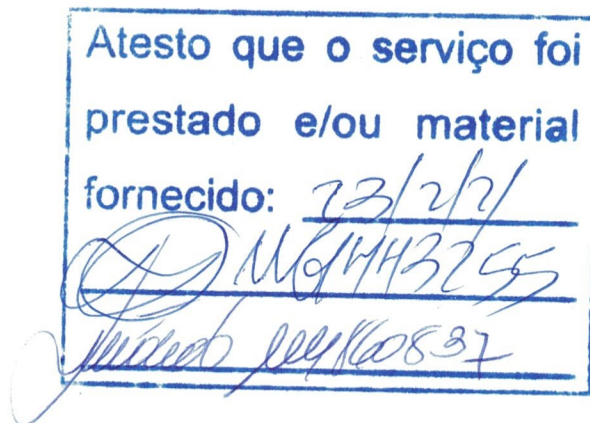 Atesto que o serviço foi
prestado e/ou material
fornecido: 23/2/21
MG1443255